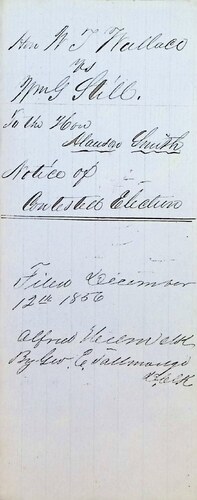 Hon W T Wallace
vs
Wm G Still.
To the Hon
Alanson Smith
Notice of
Contested Election
Filed December
12th 1856
Alfred
By Geo. E. Tallmadge